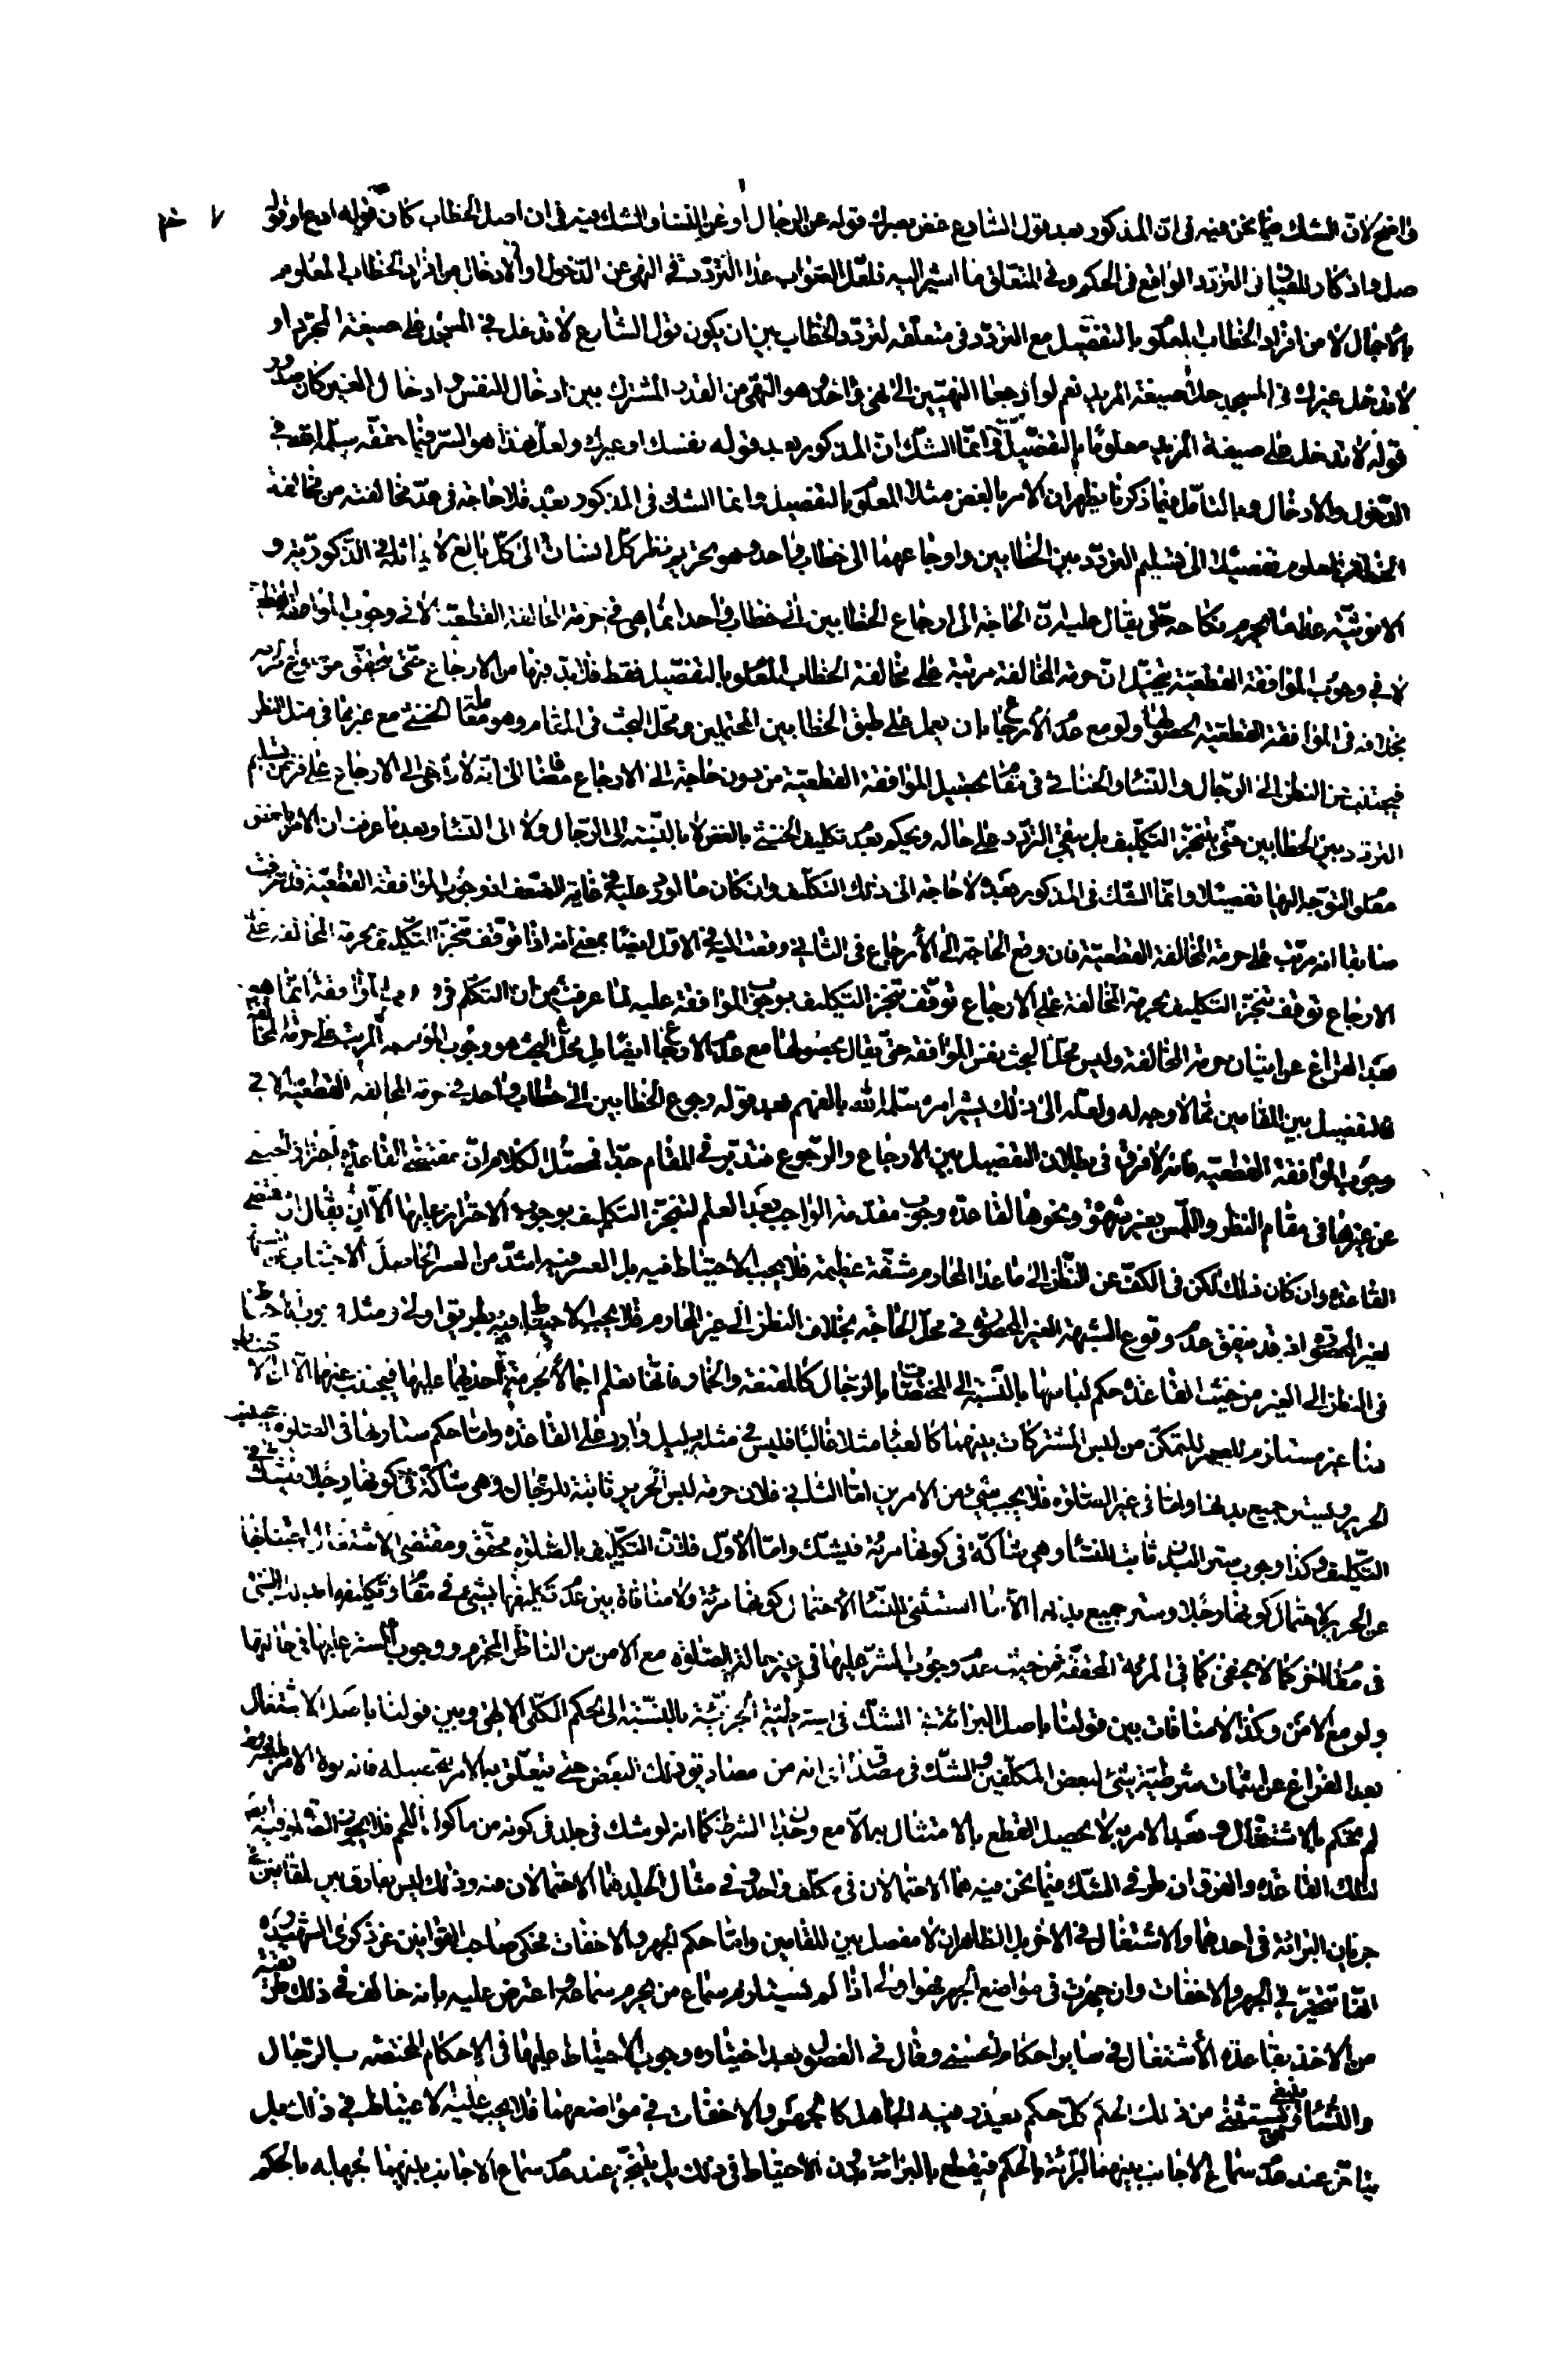 واضح لان الشك فيما نحن فيه فى ان المذكور بعد قول الشارع غض بصرك قوله عن الرجال او عن النساء والشك فيه فى ان اصل الخطاب كان قوله ادع او قوله
صل واذ كان التردد الواقع فى الحكم وفى المتعلق ما اشير اليه فلعل الصواب عد التردد فى النهى عن الدخول او الادخال من افراد الخطاب المعلوم
بالاجمال لا من افراد الخطاب المعلوم بالتفصيل مع التردد فى متعلقه لتردد الخطاب بين ان يكون قول الشارع لا تدخل فى المسجد على صيغة المجرد او
لا تدخل غيرك فى المسجد على صيغة المزيد نعم لو ارجعنا النهيين الى نهى واحد وهو النهى عن القدر المشترك بين ادخال النفس و ادخال الغير كان صدور
قوله لا تدخل على صيغة المزيد معلوما بالتفصيل وانما الشك ان المذكور بعد قوله نفسك او غيرك ولعل هذا هو السر فيما حققه سلمه الله فى
الدخول والادخال وبالتامل فيما ذكرنا يظهر ان الامر بالغض مثلا المعلوم بالتفصيل وانما الشك فى المذكور بعد فلا حاجة فى عد مخالفته من مخالفة
الخطاب المعلوم تفصيلا الى تسليم التردد بين الخطابين وارجاعهما الى خطاب واحد وهو تحريم نظر كل انسان الى كل بالغ لا يماثله فى الذكورية و
الانوثية عدا من يحرم نكاحه حتى يقال عليه ان الحاجة الى ارجاع الخطابين الى خطاب واحد انما هى فى حرمة المخالفة القطعية لا فى وجوب الموافقة القطعية
لا فى وجوب الموافقة القطعية بتخيل ان حرمة المخالفة مرتبة على مخالفة الخطاب المعلوم بالتفصيل فقط فلا بد فيها من الارجاع حتى يتحقق
بخلافه فى الموافقة القطعية لحصولها ولو مع عدم الارجاع بان يعمل على طبق الخطابين المحتملين ومحل البحث فى المقام وهو معاملة الخنثى مع غيرها فى مثل النظر
فيجتنب عن النظر الى الرجال والنساء والخناثى فى مقام تحصيل الموافقة القطعية من دون حاجة الى الارجاع مضافا الى انه لا داعى الى الارجاع على فرض تسليم
التردد بين الخطابين حتى يتنجز التكليف بل يبقى التردد على حاله ويحكم بعدم تكليف الخنثى بالغض لا بالنسبة الى الرجال ولا الى النساء وبعد ما عرفت ان الامر بالغض
معلوم التوجه اليها تفصيلا وانما الشك فى المذكور بعده لا حاجة الى ذلك التكلف وان كان ما اورد عليه فى غاية الضعف اذ وجوب الموافقة القطعية قد عرفت
سابقا انه مرتب على حرمة المخالفة القطعية فان وقع الحاجة الى الارجاع فى الثانى وقعت اليه فى الاول ايضا بمعنى انه اذا توقف تنجز التكليف بحرمة المخالفة على
الارجاع توقف تنجز التكليف بحرمة المخالفة على الارجاع توقف تنجز التكليف بوجوب الموافقة عليه لما عرفت من ان التكلم فى الموافقة انما هو
بعد الفراغ عن اثبات حرمة المخالفة وليس محل البحث نفس الموافقة حتى يقال بحصولها مع عدم الارجاع ايضا بل محل البحث هو وجوب الموافقة المرتب على حرمة المخالفة
فالتفصيل بين المقامين مما لا وجه له ولعله الى ذلك يشير امره سلمه الله بالفهم بعد قوله رجوع الخطابين الى خطاب واحد فى حرمة المخالفة القطعية لا فى
وجوب الموافقة القطعية فانه لا فرق فى بطلان التفصيل بين الارجاع والرجوع فتدبر فى المقام جدا فحصل الكلام ان مقتضى القاعدة احتراز الخنثى
عن غيرها فى مقام النظر واللمس بغير شهوة ونحوها لقاعدة وجوب مقدمة الواجب بعد العلم لتنجز التكليف بوجوب الاحتراز عليها الا ان يقال ان مقتضى
القاعدة وان كان ذلك لكن فى الكف عن النظر الى ما عدا المحارم مشقة عظيمة فلا يجب الاحتياط فيه بل العسر فيه اشد من العسر الحاصل الاجتناب عن الشبهة
الغير المحصورة اذ قد يتفق عدم وقوع الشبهة الغير المحصورة فى محل الحاجة بخلاف النظر الى غير المحارم فلا يجب الاحتياط فيه بطريق اولى ومثل
فى النظر الى الغير من حيث القاعدة حكم لباسها بالنسبة الى المختصات بالرجال كالمقنعة والخمار فانها تعلم اجمالا بحرمة احدهما عليها فيجتنب عنهما الا ان الاحتياط
هنا غير مستلزم للعسر للتمكن من لبس المشتركات بينهما كالعباء مثلا غالبا فليس فى مثله دليل وارد على القاعدة واما حكم ستارتها فى الصلوة فيجتنب
الحرير ويستر جميع بدنها واما فى غير الصلوة فلا يجب شىء من الامرين اما الثانى فلان حرمة لبس الحرير ثابتة للرجال وهى شاكة فى كونها رجلا فيشك فى
التكليف وكذا وجوب ستر البدن ثابت للنساء وهى شاكة فى كونها مرئة فيشك واما الاول فلان التكليف بالصلوة محقق ومقتضى الاشتغال اجتنابها
عن الحرير لاحتمال كونها رجلا وستر جميع بدنها الا ما استثنى للنساء لاحتمال كونها مرئة ولا منافاة بين عدم تكليفها بشىء فى مقام وتكليفها بذلك الشىء
فى مقام اخر كما لا يخفى كما فى المرئة المحققة من حيث عدم وجوب الستر عليها فى غير حالة الصلوة مع الامن من الناظر المحترم ووجوب الستر عليها فى حالتها
ولو مع الامن وكذا لا منافات بين قولنا باصل البرائة الشك فى الجزئية بالنسبة الى الحكم الكلى الالهى وبين قولنا باصل الاشتغال
بعد الفراغ عن اثبات شرطية شىء لبعض المكلفين والشك فى انه من مصاديق ذلك البعض حتى يتعلق به الامر
لم يحكم بالاشتغال وبعد الامر به لا يحصل القطع بالامتثال به الا مع وجدان الشرط كما انه لو شك فى جلد فى كونه من ماكول اللحم فلا يجوز الصلوة فيه
لتلك القاعدة والفرق ان طرفى الشك فيما نحن فيه هما الاحتمالان فى مكلف واحد وفى مثال الجلد هما الاحتمالان منه وذلك ليس بفارق بين المقامين فى
جريان البرائة فى احدهما والاشتغال فى الاخر بل الظاهر ان لا مفصل بين المقامين واما حكم الجهر والاخفات فحكى صاحب القوانين عن ذكرى الشهيد ره
انها تتخير فى الجهر والاخفات وان جهرت فى مواضع الجهر فهو اولى اذا لم يستلزم سماع من يحرم سماعه واعترض عليه بانه خالف فى ذلك طريقته
من الاخذ بقاعدة الاشتغال فى سائر احكام الخنثى وقال فى الفصول بعد اختياره وجوب الاحتياط عليها فى الاحكام المختصه بالرجال
والنساء وينبغى ان يستثنى من ذلك الحكم كل حكم يعذر فيه الجاهل كالجهر والاخفات فى مواضعهما فلا يجب عليه الاحتياط فى ذلك بل
يتاخر عند عدم سماع الاجانب بينهما للبرائة بالحكم فيقطع بالبرائة بدون الاحتياط فى ذلك بل يتخير عند عدم سماع الاجانب بينهما لجهله بالحكم